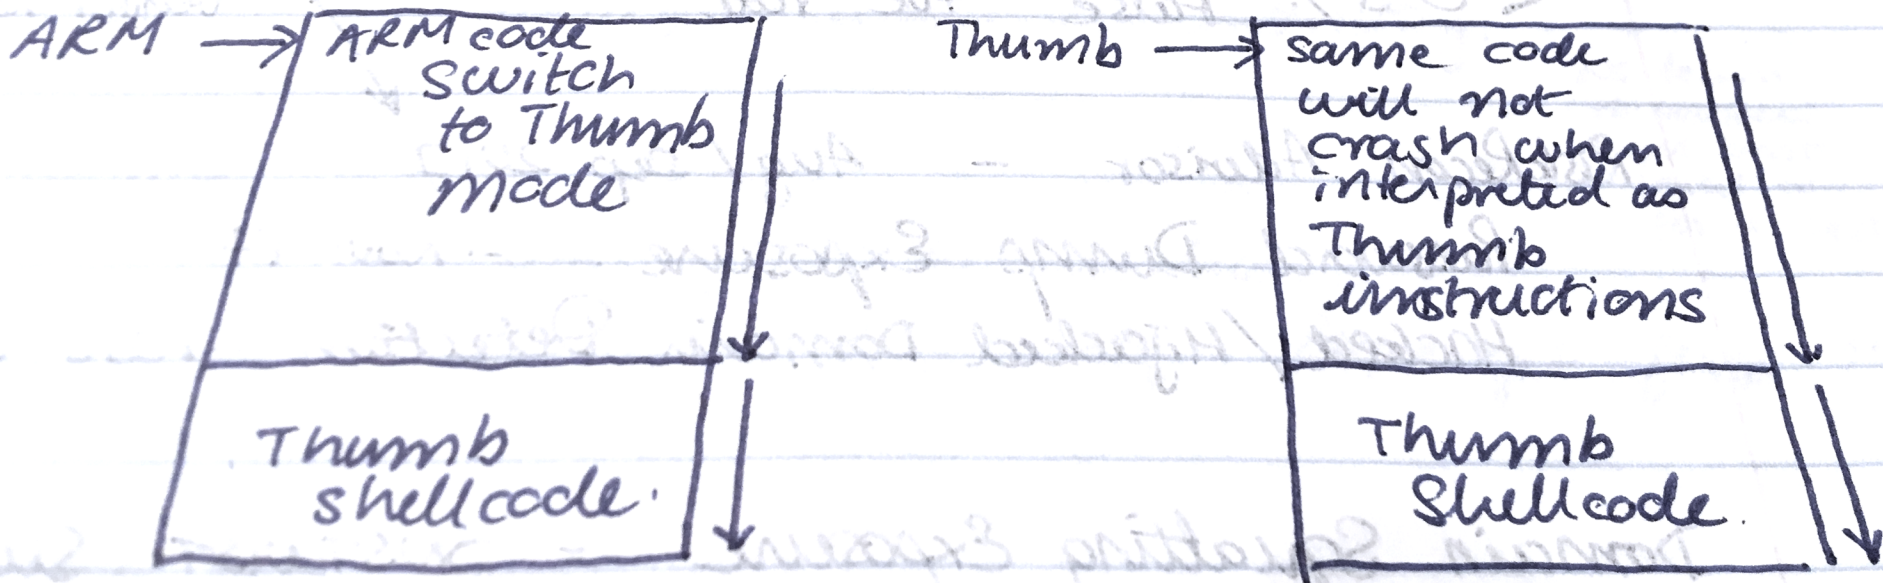 ARM
ARM code
switch
to Thumb
mode
Thumb
shellcode.
Thumb
same code
will not
crash when
interpreted as
Thumb
instructions
Thumb
Shellcode.